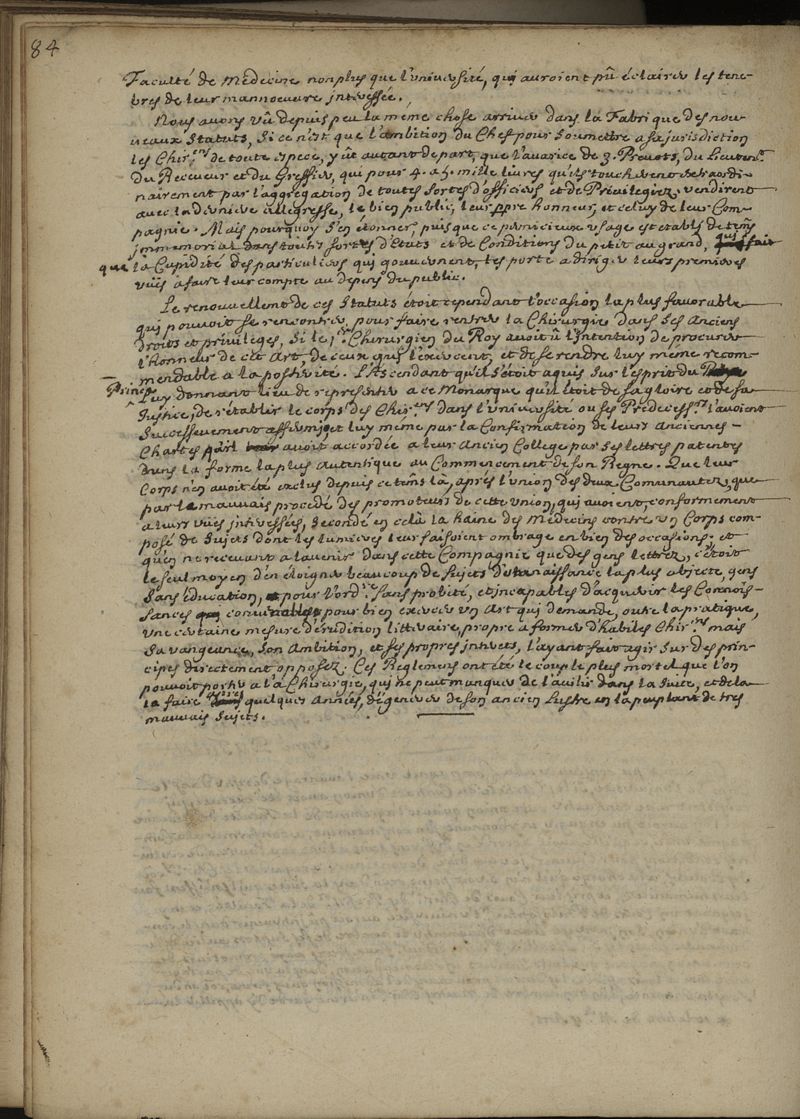 84
Faculté de Médecine non plus que l'université, qui auroient pû éclairer les tene-
bres de leur manoeuvre jnteressée.
Nous avons vû depuis peu la meme chose arriver dans la Fabrique des nou-
ueaux Statuts, Si ce n'est que l'ambition du Chef pour soumettre a sa jurisdiction
les Chir.ens de toute espece, y ût autant de part, que l'auarice de 3. Preuots, du Lieuten.t
du Receueur et du Greffier, qui pour 4. a 5. mille liures qu'ils toucherent extraordi-
nairement par l'aggregation de toutes sortes d'officiers et de Priuilegiez, vendirent
auec la derniere allegresse, le bien public, leur ppre honneur, et celuy de leur Com-
pagnie. Mais pourquoy s'en etonner, puis que ce pernicieux usage est etabli de tems
jmmemorial dans toutes sortes d'Etats et de Conditions du petit au grand, qui fait
que la Cupidité des particuliers qui gouuernent, les porte a diriger leurs premieres
vües a faire leur compte au depens du public.
Le renouuellem.t de ces Statuts étoit cependant l'occasion la plus fauorable
qui pouuoit se rencontrer, pour faire rentrer la Chirurgie dans ses Anciens
droits et priuileges, Si le 1.er Chirurgien du Roy auoit û l'intention de procurer
l'honneur de cet Art, de ceux qui l'exercent, et de se rendre luy meme recom-
mendable a la posterité. L'Ascendant qu'il s'etoit aquis sur l'esprit du
Prince luy donnant lieu de representer a ce Monarque qu'il etoit de sa gloire et de sa
Justice, de rétablir le corps des Chir.ens dans l'Uniuersité ou ses Predecess.rs l'auoient
successiuement affermi, et luy meme par la Confirmation de leurs Anciennes
Chartes auoit accordée a leur Ancien College par ses lettres patentes
dans la forme la plus autentique au Commencement de son Regne. Que leur
Corps n'en auoit été exclus depuis ce tems là, aprés l'union des deux Comunautez, que
par le mauuais procedé des promoteurs de cette Union, qui auoient, conformement
a leurs vües jnteressées, secondé en celà la haine des Médecins contre un Corps com-
posé de Sujets dont les lumieres leur faisoient ombrage en bien des occasions; et
qu'en ne receuant a l'auenir dans cette Compagnie que des gens lettrez, c'étoit
le seul moyen d'en éloigner beaucoup de Sujets d'une naissance la plus abjecte, gens
sans Education, et pour l'ord.re sans probité, et incapables d'acquerir les Connois-
sances conuenables pour bien exercer un Art qui demande, outre la pratique,
une certaine mesure d'érudition litteraire, propre a former d'habiles Chir.ens mais
Sa vangeance, son Ambition, et ses propres jnterets, l'ayant fait agir sur des prin-
cipes directement opposez. Ces Reglemens ont été le coup le plus mortel que l'on
pouuoit porter a la Chirurgie, qui ne peut manquer de l'auilir dans la suite, et de la
la faire apres quelques Années, dégenerer de son ancien Lustre en la peuplant de tres
mauuais Sujets.